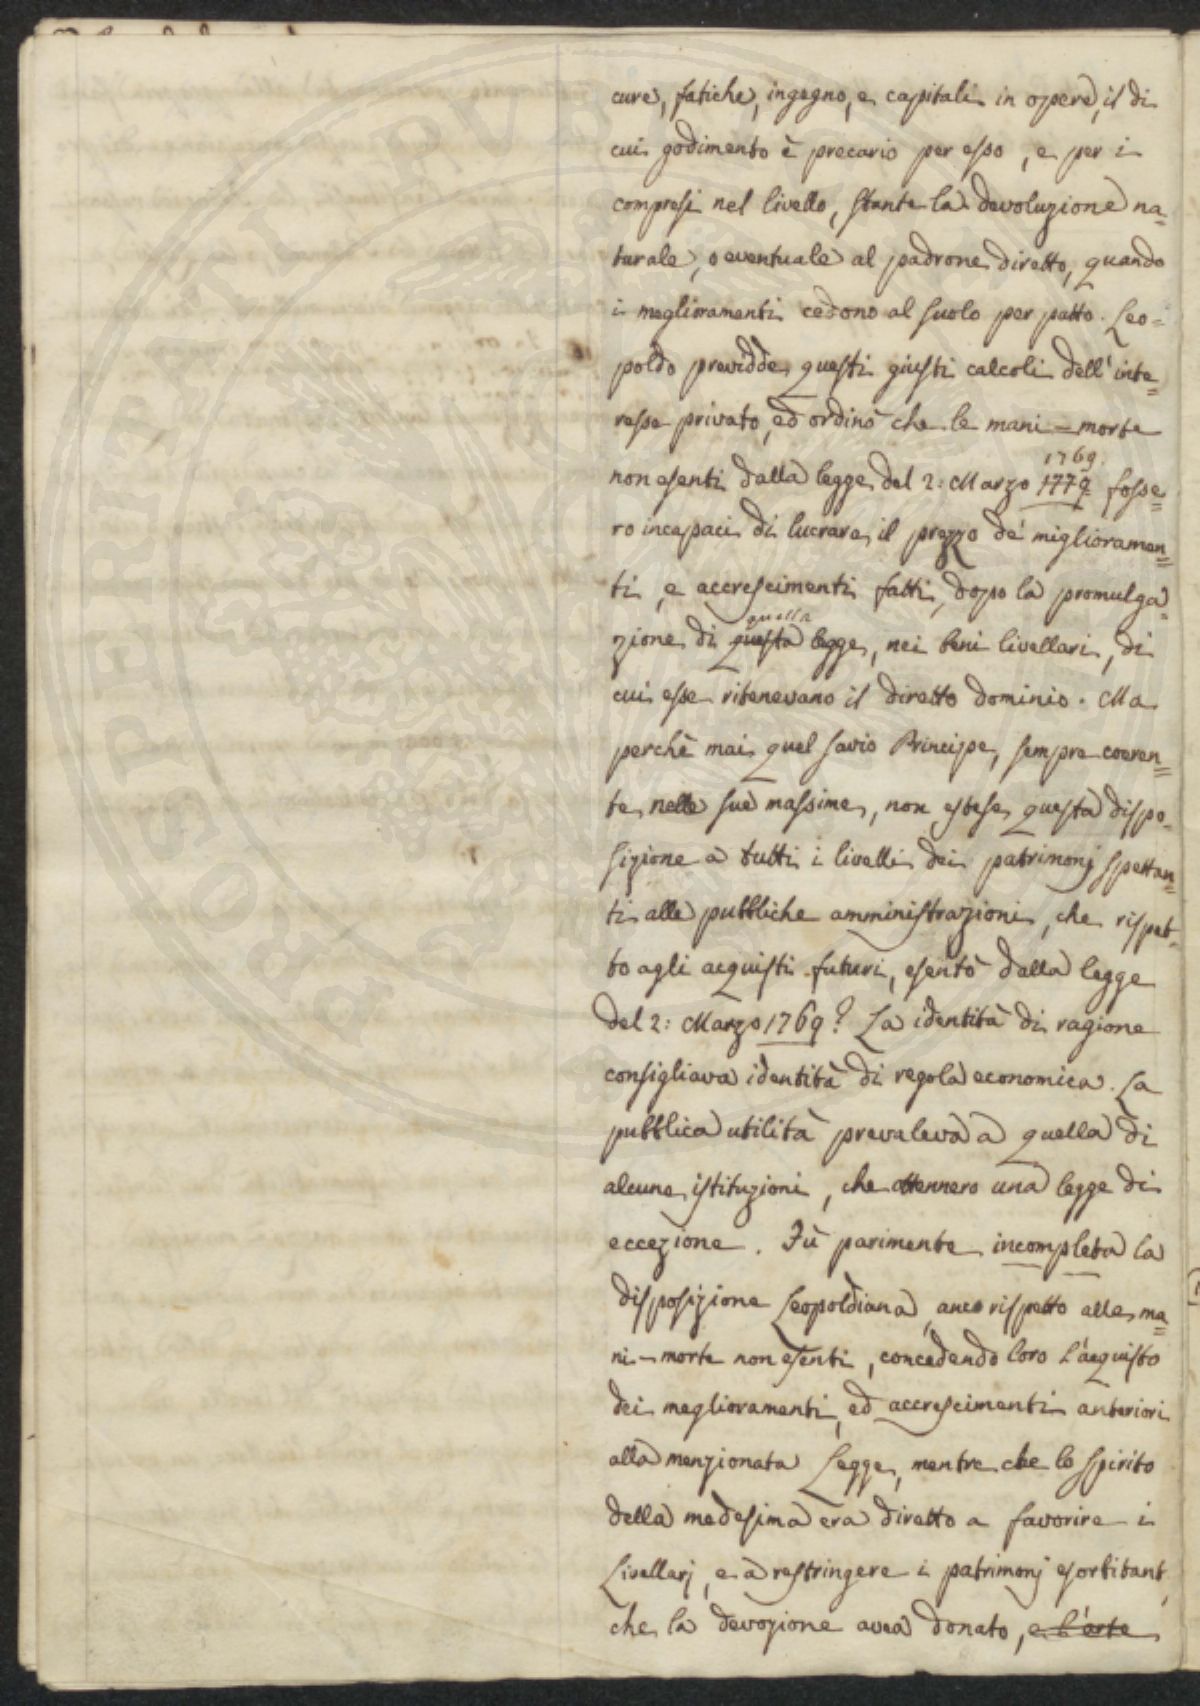 cure, fatiche, ingegno, e capitali in opere, il di
cui godimento è precario per esso, e per i
compresi nel livello, stante la devoluzione na=
turale, o eventuale al padrone diretto, quando
i meglioramenti cedono al suolo per patto. Leo=
poldo previdde questi giusti calcoli dell'inte=
resse privato, ed ordinò che le mani-morte
1769.
non esenti dalla legge del 2: Marzo 1779 fosse=
ro incapaci di lucrare il prezzo de' miglioramen=
ti, e accrescimenti fatti, dopo la promulga=
quella
zione di questa legge, nei beni livellari, di
cui esse ritenevano il diretto dominio. Ma
perchè mai quel savio Principe, sempre coeren=
te nelle sue massime, non estese questa dispo=
sizione a tutti i livelli dei patrimonj spettan=
ti alle pubbliche amministrazioni, che rispet=
to agli acquisti futuri, esentò dalla legge
del 2: Marzo 1769? La identità di ragione
consigliava identità di regola economica. La
pubblica utilità prevaleva a quella di
alcune istituzioni, che ottennero una legge di
eccezione. Fù parimente incompleta la
disposizione Leopoldiana, anco rispetto alle ma=
ni-morte non esenti, concedendo loro l'acquisto
dei meglioramenti, ed accrescimenti anteriori
alla menzionata Legge, mentre che lo spirito
della medesima era diretto a favorire i
Livellarj, e a restringere i patrimonj esorbitanti,
che la devozione avea donato, e l'arte
PROSPERITATI PUB